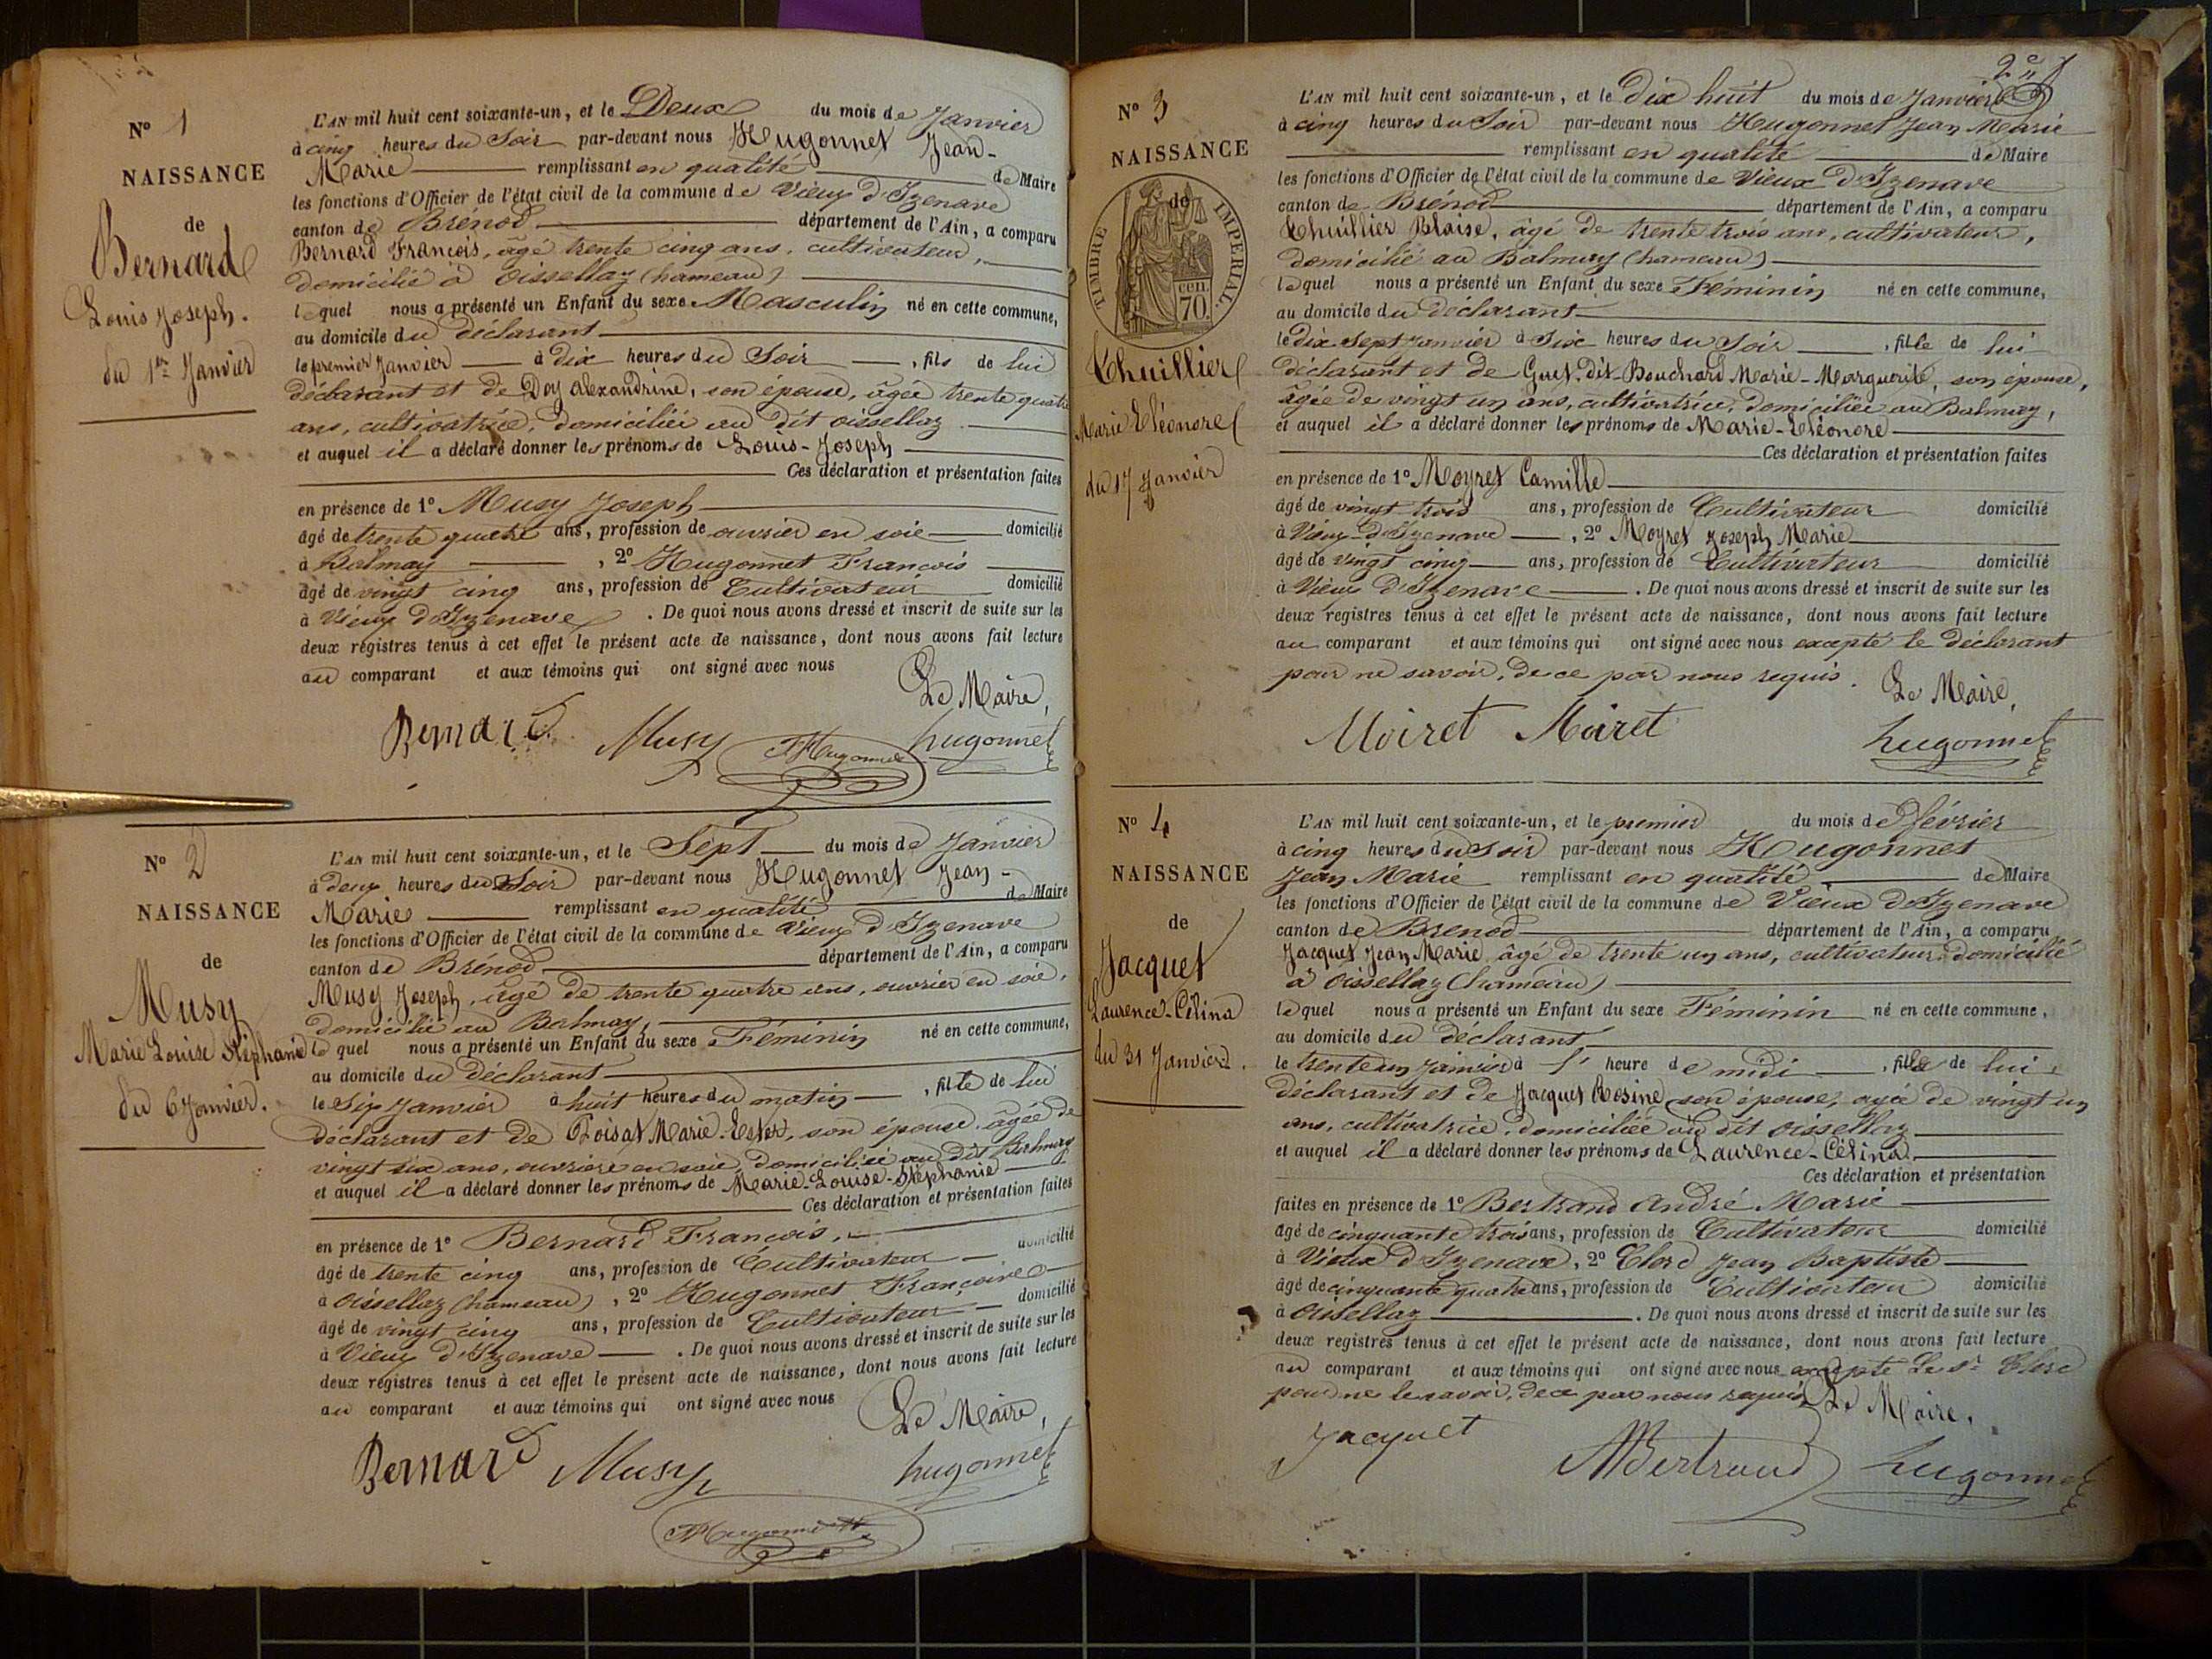 N° 1
NAISSANCE
de
Bernard
Louis Joseph.
du 1er Janvier
L'AN mil huit cent soixante-un, et le Deux du mois de Janvier
à cinq heures du Soir par-devant nous Hugonnet Jean-
Marie remplissant en qualité de Maire
les fonctions d'Officier de l'état civil de la commune de Vieux d'Izenave
canton de Brénod département de l'Ain, a comparu
Bernard François, âgé trente cinq ans, cultivateur,
domicilié à Oissellaz (hameau)
lequel nous a présenté un Enfant du sexe Masculin né en cette commune,
au domicile du déclarant
le premier Janvier à dix heures du Soir, fils de lui
déclarant et de Dey Alexandrine, son épouse, âgée trente quatre
ans, cultivatrice, domiciliée au dit oissellaz
et auquel il a déclaré donner les prénoms de Louis-Joseph
Ces déclaration et présentation faites
en présence de 1° Musy Joseph
âgé de trente quatre ans, profession de ouvrier en soie domicilié
à Balmay, 2° Hugonnet François
âgé de vingt cinq ans, profession de Cultivateur domicilié
à Vieux d'Izenave. De quoi nous avons dressé et inscrit de suite sur les
deux régistres tenus à cet effet le présent acte de naissance, dont nous avons fait lecture
au comparant et aux témoins qui ont signé avec nous
Le Maire,
Bernard Musy FHugonnet hugonnet
N° 2
NAISSANCE
de
Musy
Marie Louise Stéphanie
du 6 Janvier.
L'AN mil huit cent soixante-un, et le Sept du mois de Janvier
à deux heures du Soir par-devant nous Hugonnet Jean-
Marie remplissant en qualité de Maire
les fonctions d'Officier de l'état civil de la commune de Vieux d'Izenave
canton de Brénod département de l'Ain, a comparu
Musy Joseph, âgé de trente quatre ans, ouvrier en soie,
domicilié au Balmay,
lequel nous a présenté un Enfant du sexe Féminin né en cette commune,
au domicile du déclarant
le Six Janvier à huit heures du matin, fille de lui
déclarant et de Poisat Marie-Ester, son épouse, âgée de
vingt six ans, ouvrière en soie, domiciliée au dit Balmay
et auquel il a déclaré donner les prénoms de Marie-Louise-Stéphanie
Ces déclaration et présentation faites
en présence de 1° Bernard François,
âgé de trente cinq ans, profession de Cultivateur domicilié
à Oissellaz (hameau), 2° Hugonnet François
âgé de vingt cinq ans, profession de Cultivateur domicilié
à Vieux d'Izenave. De quoi nous avons dressé et inscrit de suite sur les
deux régistres tenus à cet effet le présent acte de naissance, dont nous avons fait lecture
au comparant et aux témoins qui ont signé avec nous
Le Maire,
Bernard Musy hugonnet
FHugonnet
N° 3
NAISSANCE
de
TIMBRE IMPERIAL
CEN. 70.
Thuillier
Marie Eléonore
du 17 Janvier
L'AN mil huit cent soixante-un, et le dix huit du mois de Janvier
à cinq heures du Soir par-devant nous Hugonnet Jean Marie
remplissant en qualité de Maire
les fonctions d'Officier de l'état civil de la commune de Vieux d'Izenave
canton de Brénod département de l'Ain, a comparu
Thuillier Blaise, âgé de trente trois ans, cultivateur,
domicilié au Balmay (hameau)
lequel nous a présenté un Enfant du sexe Féminin né en cette commune,
au domicile du déclarant
le dix Sept Janvier à Six heures du Soir, fille de lui
déclarant et de Guet-dit-Bouchard Marie-Marguerite, son épouse,
âgée de vingt un ans, cultivatrice, domiciliée au Balmay,
et auquel il a déclaré donner les prénoms de Marie-Eléonore
Ces déclaration et présentation faites
en présence de 1° Moyret Camille
âgé de vingt trois ans, profession de Cultivateur domicilié
à Vieux-d'Izenave, 2° Moyret Joseph Marie
âgé de vingt cinq ans, profession de Cultivateur domicilié
à Vieux d'Izenave. De quoi nous avons dressé et inscrit de suite sur les
deux régistres tenus à cet effet le présent acte de naissance, dont nous avons fait lecture
au comparant et aux témoins qui ont signé avec nous excepté le déclarant
pour ne savoir, de ce par nous requis.
Le Maire,
Moiret Moiret hugonnet
N° 4
NAISSANCE
de
Jacquet
Laurence-Célina
du 31 Janvier.
L'AN mil huit cent soixante-un, et le premier du mois de février
à cinq heures du Soir par-devant nous Hugonnet
Jean Marie remplissant en qualité de Maire
les fonctions d'Officier de l'état civil de la commune de Vieux d'Izenave
canton de Brénod département de l'Ain, a comparu
Jacquet Jean Marie, âgé de trente un ans, cultivateur, domicilié
à Oissellaz (hameau)
lequel nous a présenté un Enfant du sexe Féminin né en cette commune,
au domicile du déclarant
le trente un Janvier à l' heure de midi, fille de lui
déclarant et de Jacquet Rosine son épouse, agée de vingt un
ans, cultivatrice, domiciliée au dit Oissellaz
et auquel il a déclaré donner les prénoms de Laurence-Célina
Ces déclaration et présentation
faites en présence de 1° Bertrand André Marie
âgé de cinquante trois ans, profession de Cultivateur domicilié
à Vieux d'Izenave, 2° Clerc Jean Baptiste
âgé de cinquante quatre ans, profession de Cultivateur domicilié
à Oissellaz. De quoi nous avons dressé et inscrit de suite sur les
deux régistres tenus à cet effet le présent acte de naissance, dont nous avons fait lecture
au comparant et aux témoins qui ont signé avec nous excepté le Sr Clerc
pour ne le savoir, de ce par nous requis.
Le Maire,
Jacquet AMBertrand hugonnet